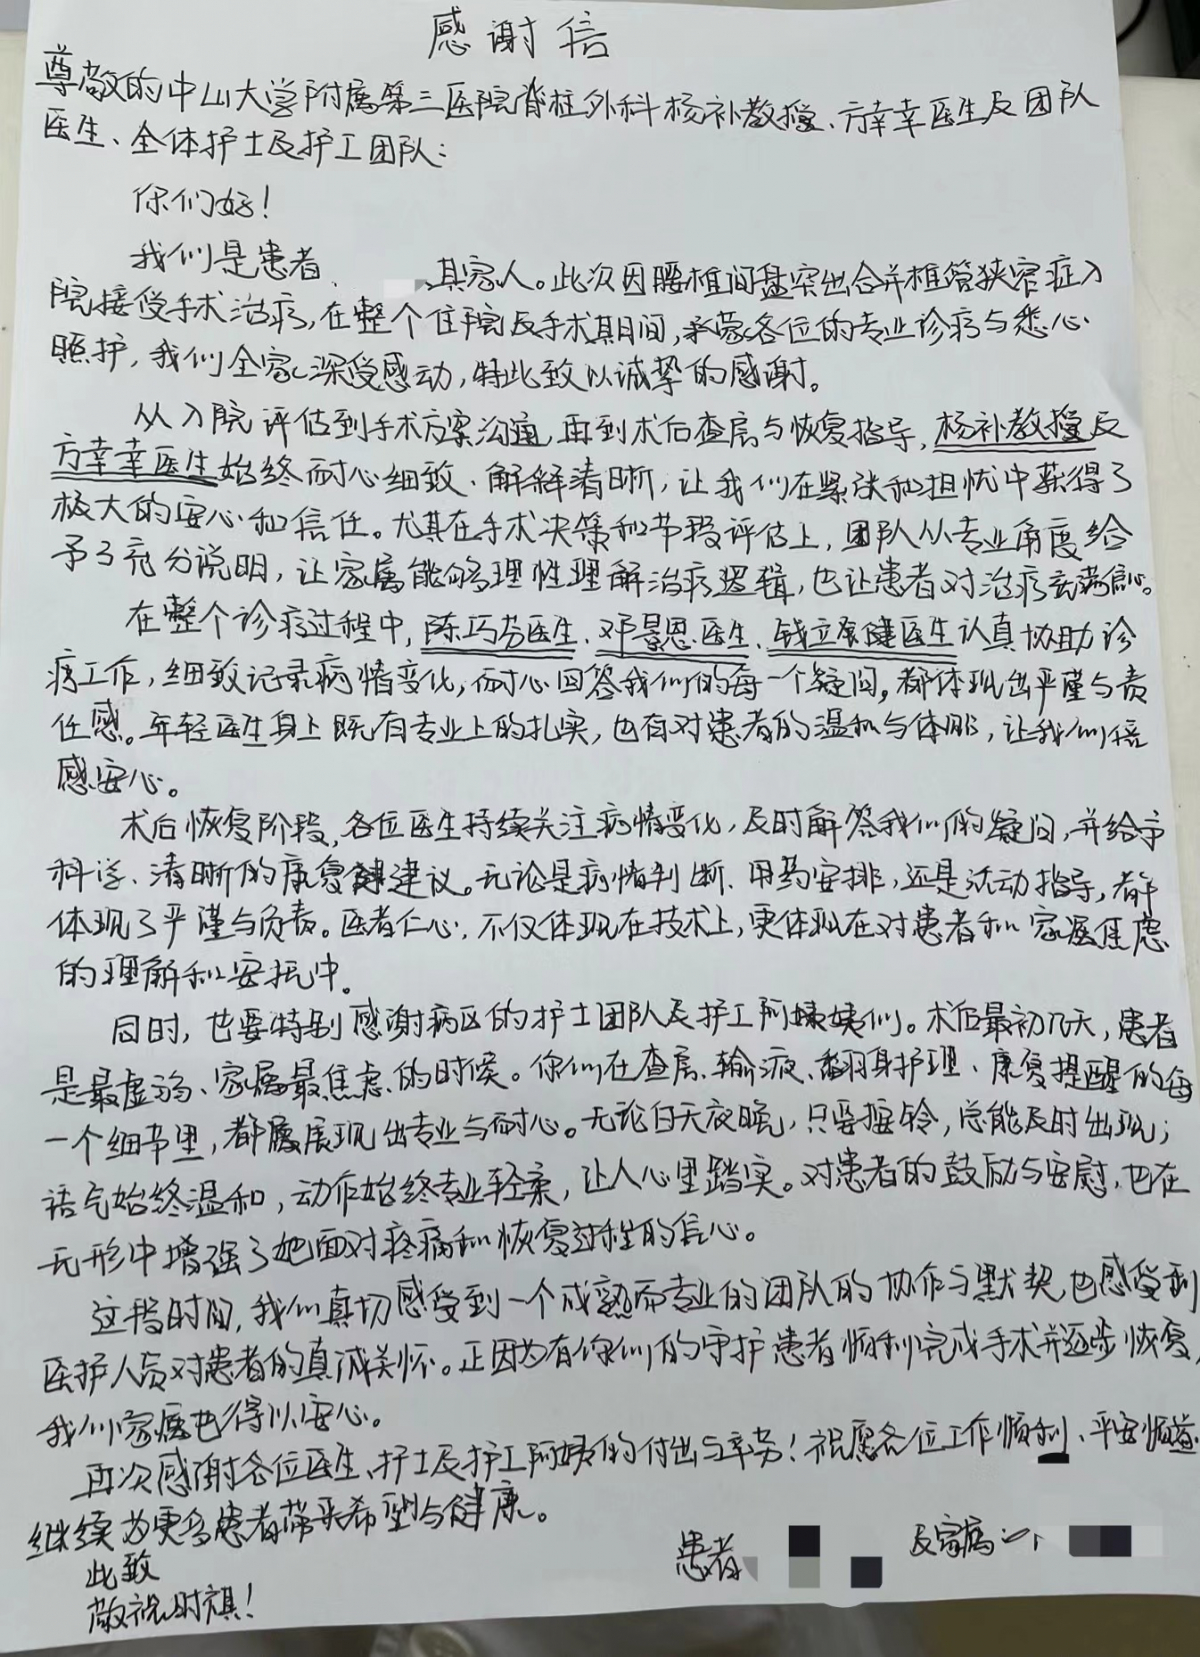 感谢信
尊敬的中山大学附属第三医院脊柱外科杨补教授、方幸幸医生及团队
医生、全体护士及护工团队:
你们好!
我们是患者 、其家人。此次因腰椎间盘突出合并椎管狭窄症入
院接受手术治疗,在整个住院及手术期间,承蒙各位的专业诊疗与悉心
照护,我们全家深受感动,特此致以诚挚的感谢。
从入院评估到手术方案沟通,再到术后查房与恢复指导,杨补教授及
方幸幸医生始终耐心细致、解释清晰,让我们在紧张和担忧中获得了
极大的安心和信任。尤其在手术决策和节段评估上,团队从专业角度给
予了充分说明,让家属能够理性理解治疗逻辑,也让患者对治疗充满信心。
在整个诊疗过程中,陈巧芬医生、邓景恩医生、钱立展健医生认真协助诊
疗工作,细致记录病情变化,耐心回答我们的每一个疑问,都体现出严谨与责
任感。年轻医生身上既有专业上的扎实,也有对患者的温和与体贴,让我们倍
感安心。
术后恢复阶段,各位医生持续关注病情变化,及时解答我们的疑问,并给予
科学、清晰的康复建议。无论是病情判断、用药安排,还是活动指导,都
体现了严谨与负责。医者仁心,不仅体现在技术上,更体现在对患者和家属焦虑
的理解和安抚中。
同时,也要特别感谢病区的护士团队及护工阿姨们。术后最初几天,患者
是最虚弱、家属最焦虑的时候。你们在查房、输液、翻身护理、康复提醒的每
一个细节里,都展现出专业与耐心。无论白天夜晚,只要按铃,总能及时出现;
语气始终温和,动作始终专业轻柔,让人心里踏实。对患者的鼓励与安慰,也在
无形中增强了她面对疼痛和恢复过程的信心。
这段时间,我们真切感受到一个成熟而专业的团队的协作与默契,也感受到
医护人员对患者的真诚关怀。正因为有你们的守护,患者顺利完成手术并逐步恢复,
我们家属也得以安心。
再次感谢各位医生、护士及护工阿姨的付出与辛劳!祝愿各位工作顺利、平安顺遂,
继续为更多患者带来希望与健康。
此致
敬祝时祺!
患者 及家属